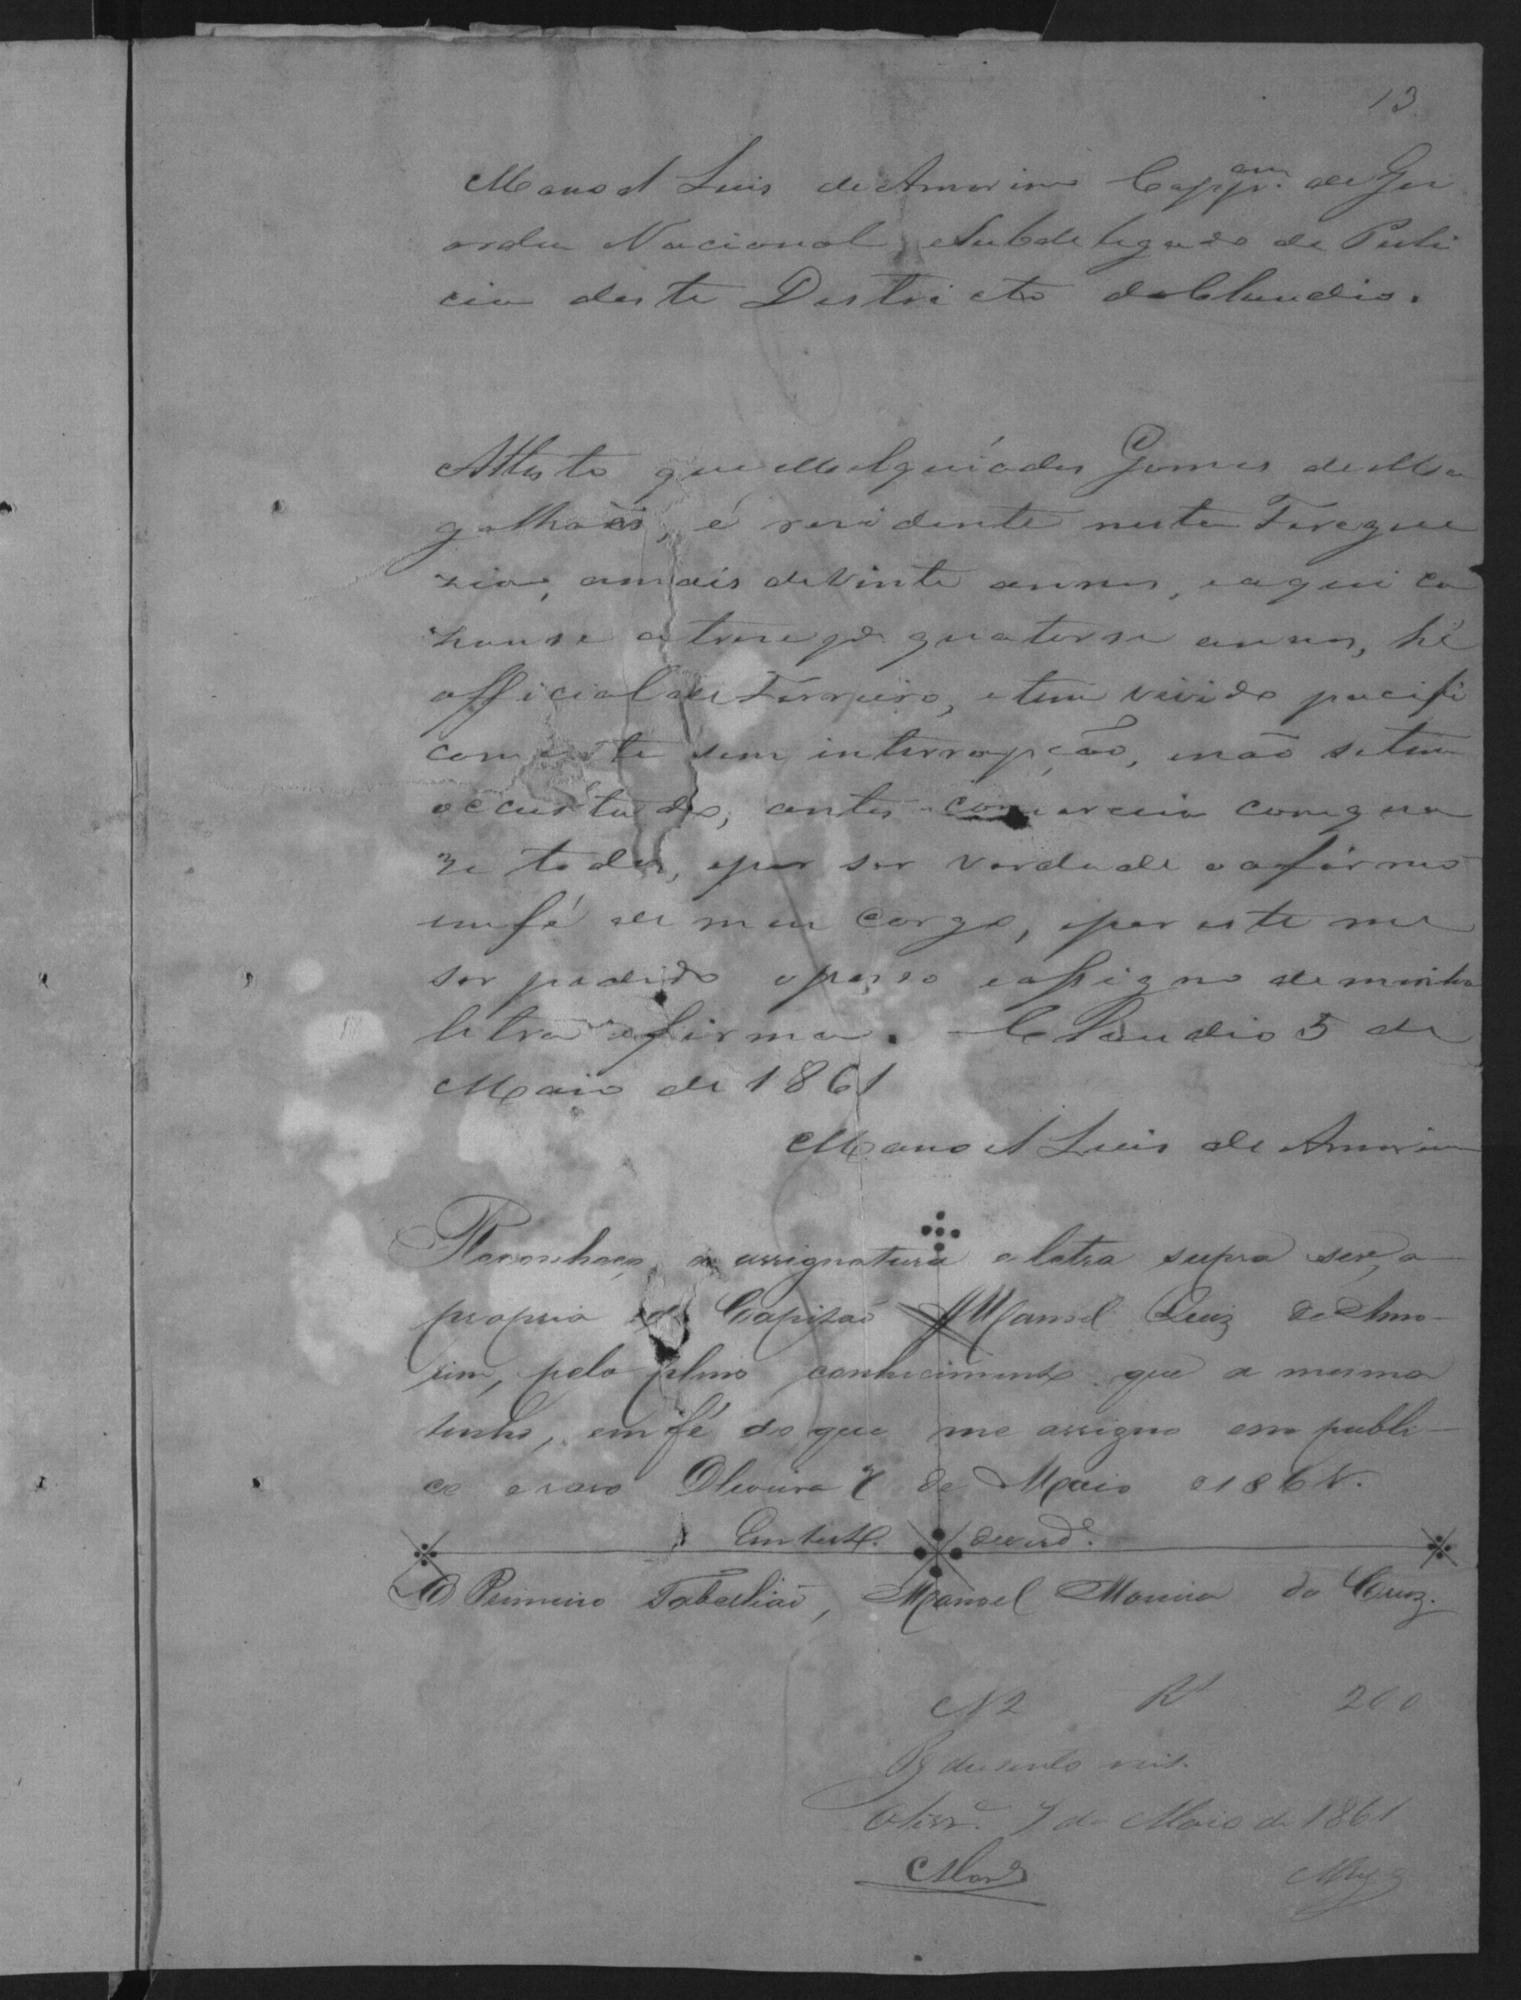 13
Manoel Luis de Amorim Cappam. de Gu
arda Nacional, eSubdelegado de Puli
cia deste Destricto doClaudio.
Attesto que Melquíades Gomes deMa
galhaẽs, é residente nesta Fregue
zia, amais deVinte annos, eaqui ca
zouse atreze pa quatorse annos, hé
official de Ferreiro, etem vivido pacifi
camente sem interropção, enão setem
occurtado, antes comercia comqua
ze todos, epor ser verdade oafirmo
emfé de meu cargo, epor este me
ser pedido opasso eassigno deminha
letra efirma. Claudio 5 de
Maio de 1861
Manoel Luis de Amorim
Reconheço a assignatura e letra supra ser, a
propria do Capitaõ Manoel Luiz de Amo-
rim, pelo pleno conhecimento que a mesma
tenho, em fé do que me assigno em publi-
co e raso Oliveira 7 de Maio de 1861.
Em testo. deverde.
O Primeiro Tabelliaõ, Manoel Moreira da Cruz.
N2 Rs 200
Pg dusentos reis.
Olivra. 7 de Maio de 1861